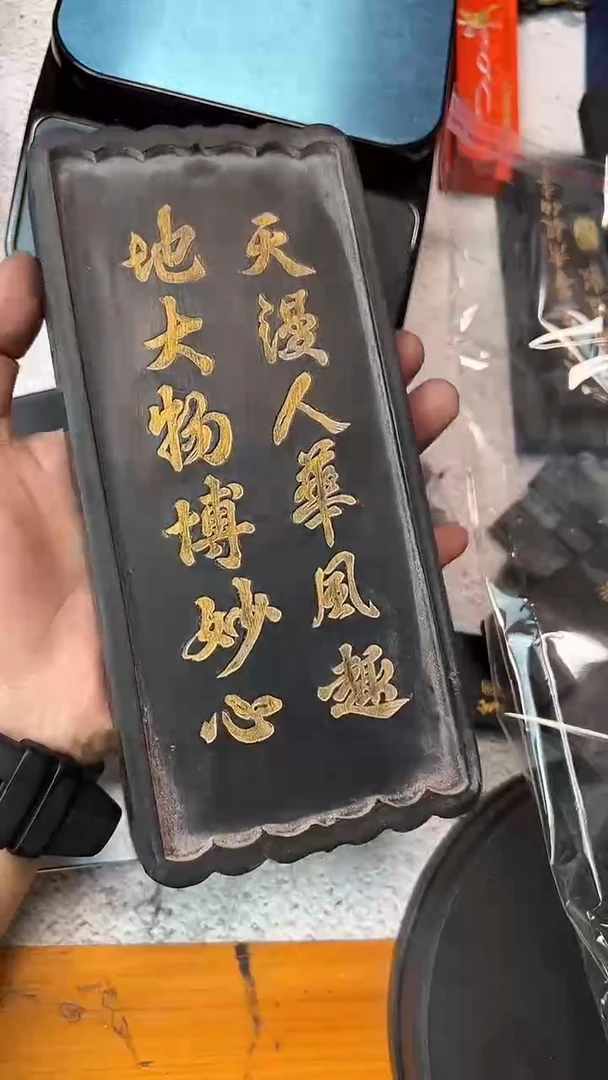 天漫人華風趣
地大物博妙心